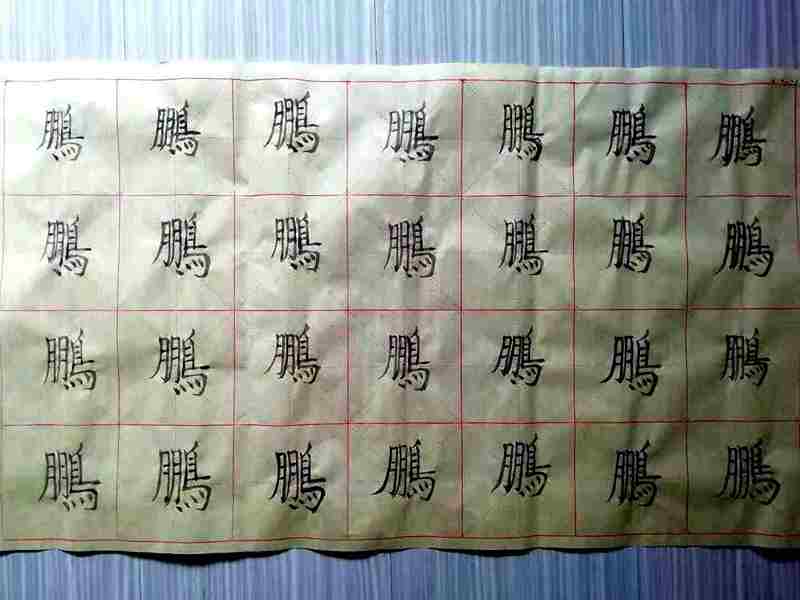 鵬鵬鵬鵬鵬鵬鵬
鵬鵬鵬鵬鵬鵬鵬
鵬鵬鵬鵬鵬鵬鵬
鵬鵬鵬鵬鵬鵬鵬